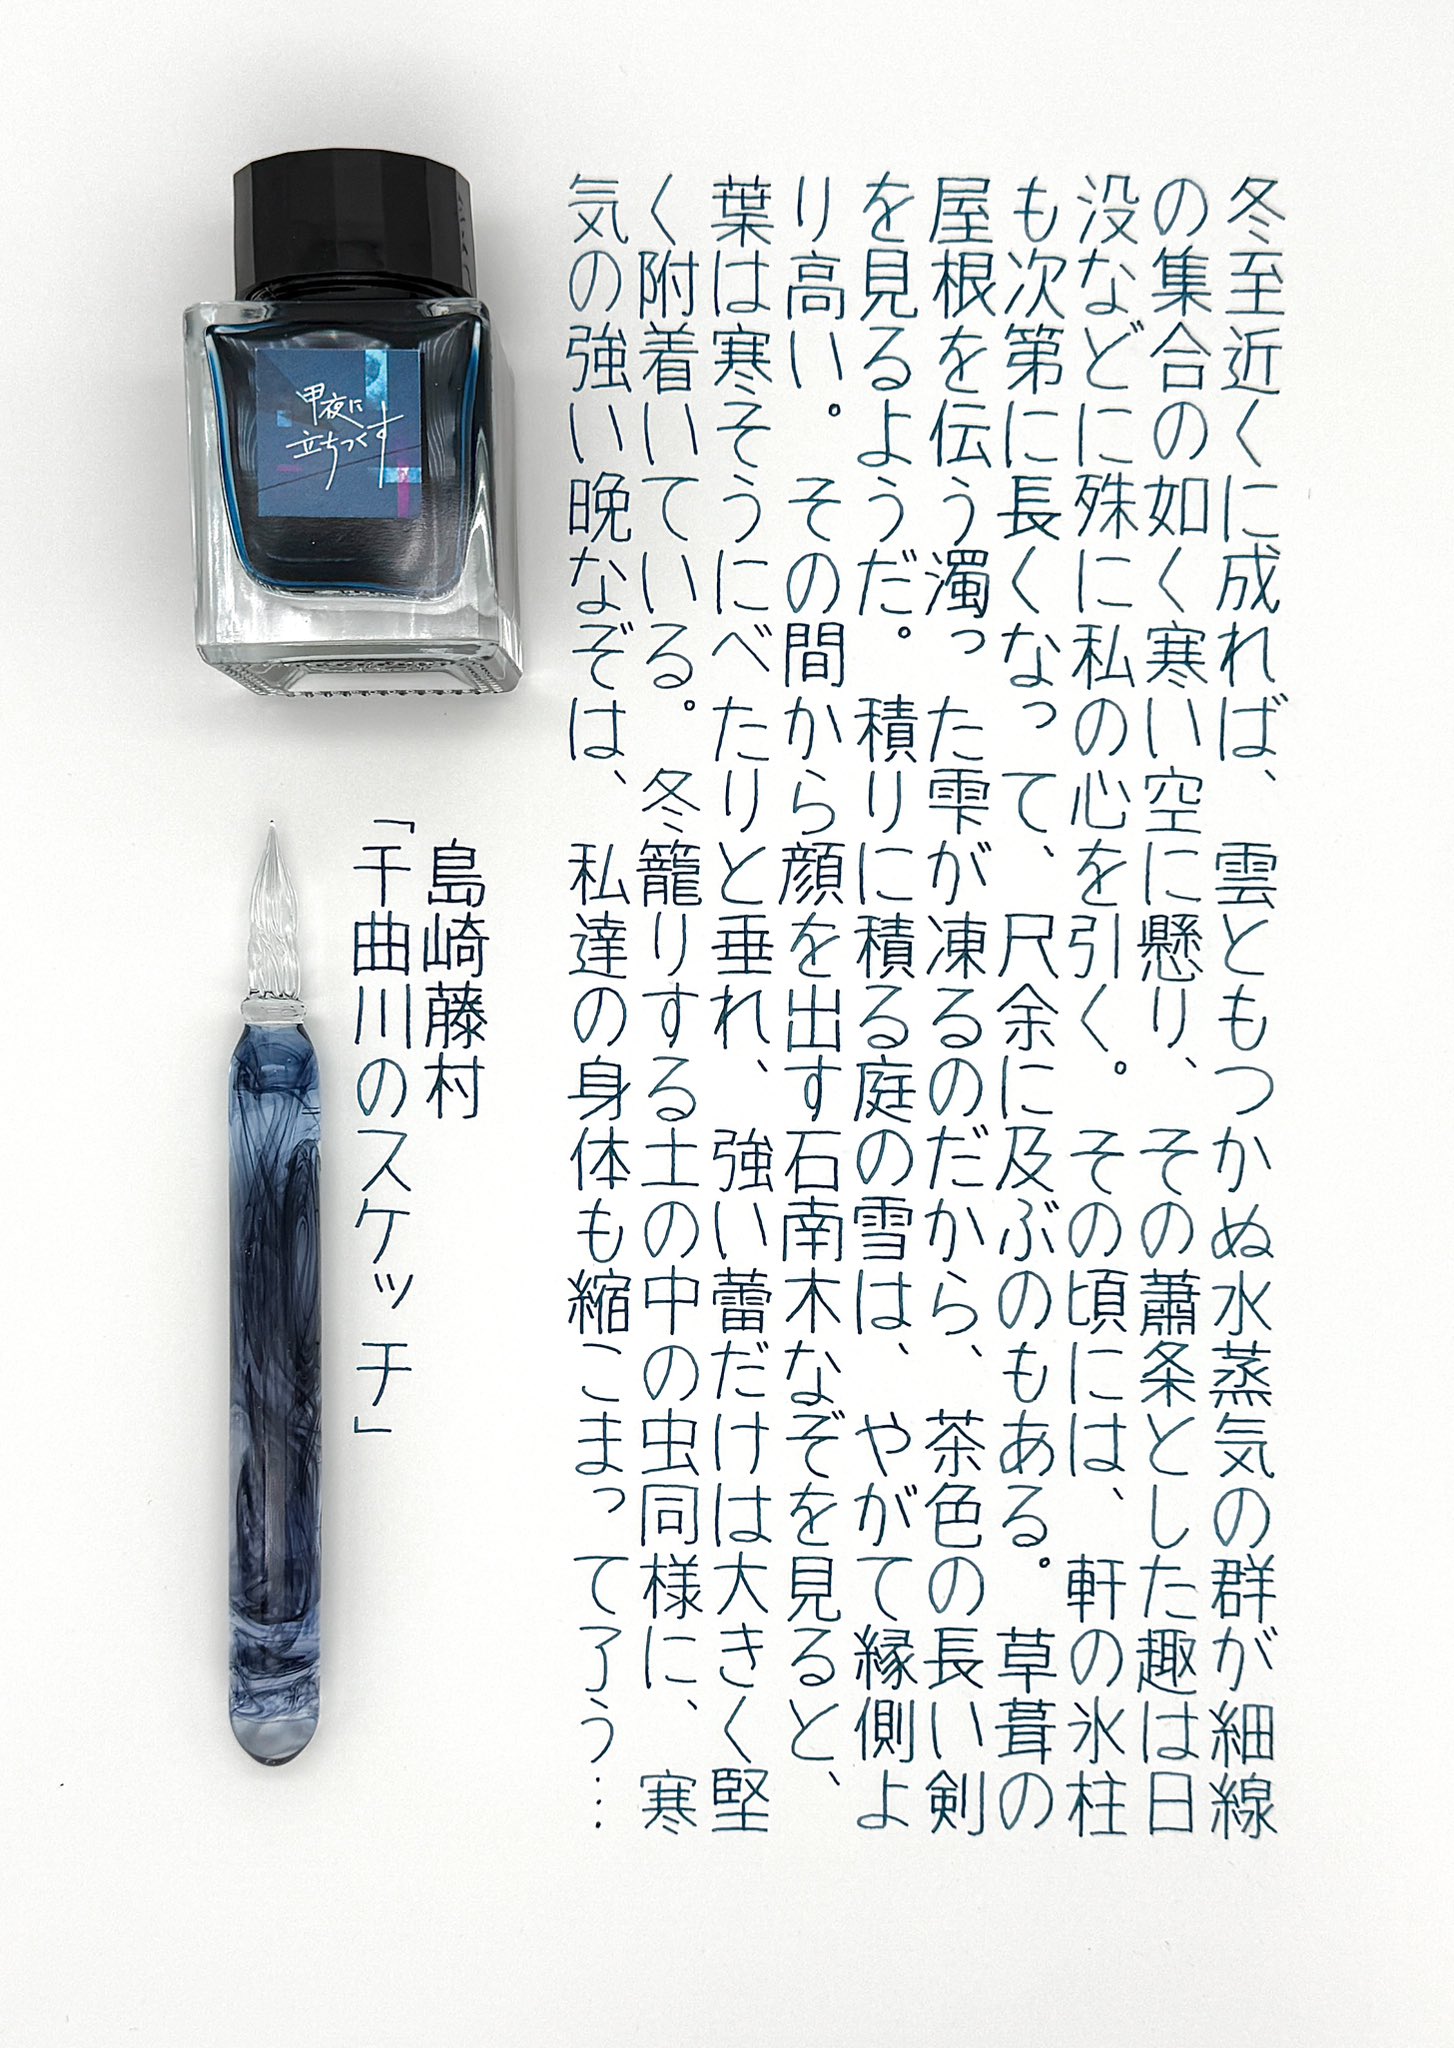 冬至近くに成れば、雲ともつかぬ水蒸気の群が細線
の集合の如く寒い空に懸り、その蕭条とした趣は日
没などに殊に私の心を引く。その頃には、軒の氷柱
も次第に長くなって、尺余に及ぶのもある。草葺の
屋根を伝う濁った雫が凍るのだから、茶色の長い剣
を見るようだ。積りに積る庭の雪は、やがて縁側よ
り高い。その間から顔を出す石南木なぞを見ると、
葉は寒そうにべたりと垂れ、強い蕾だけは大きく堅
く附着いている。冬籠りする土の中の虫同様に、寒
気の強い晩なぞは、私達の身体も縮こまって了う…
島崎藤村
「千曲川のスケッチ」
甲夜に
立ちつくす